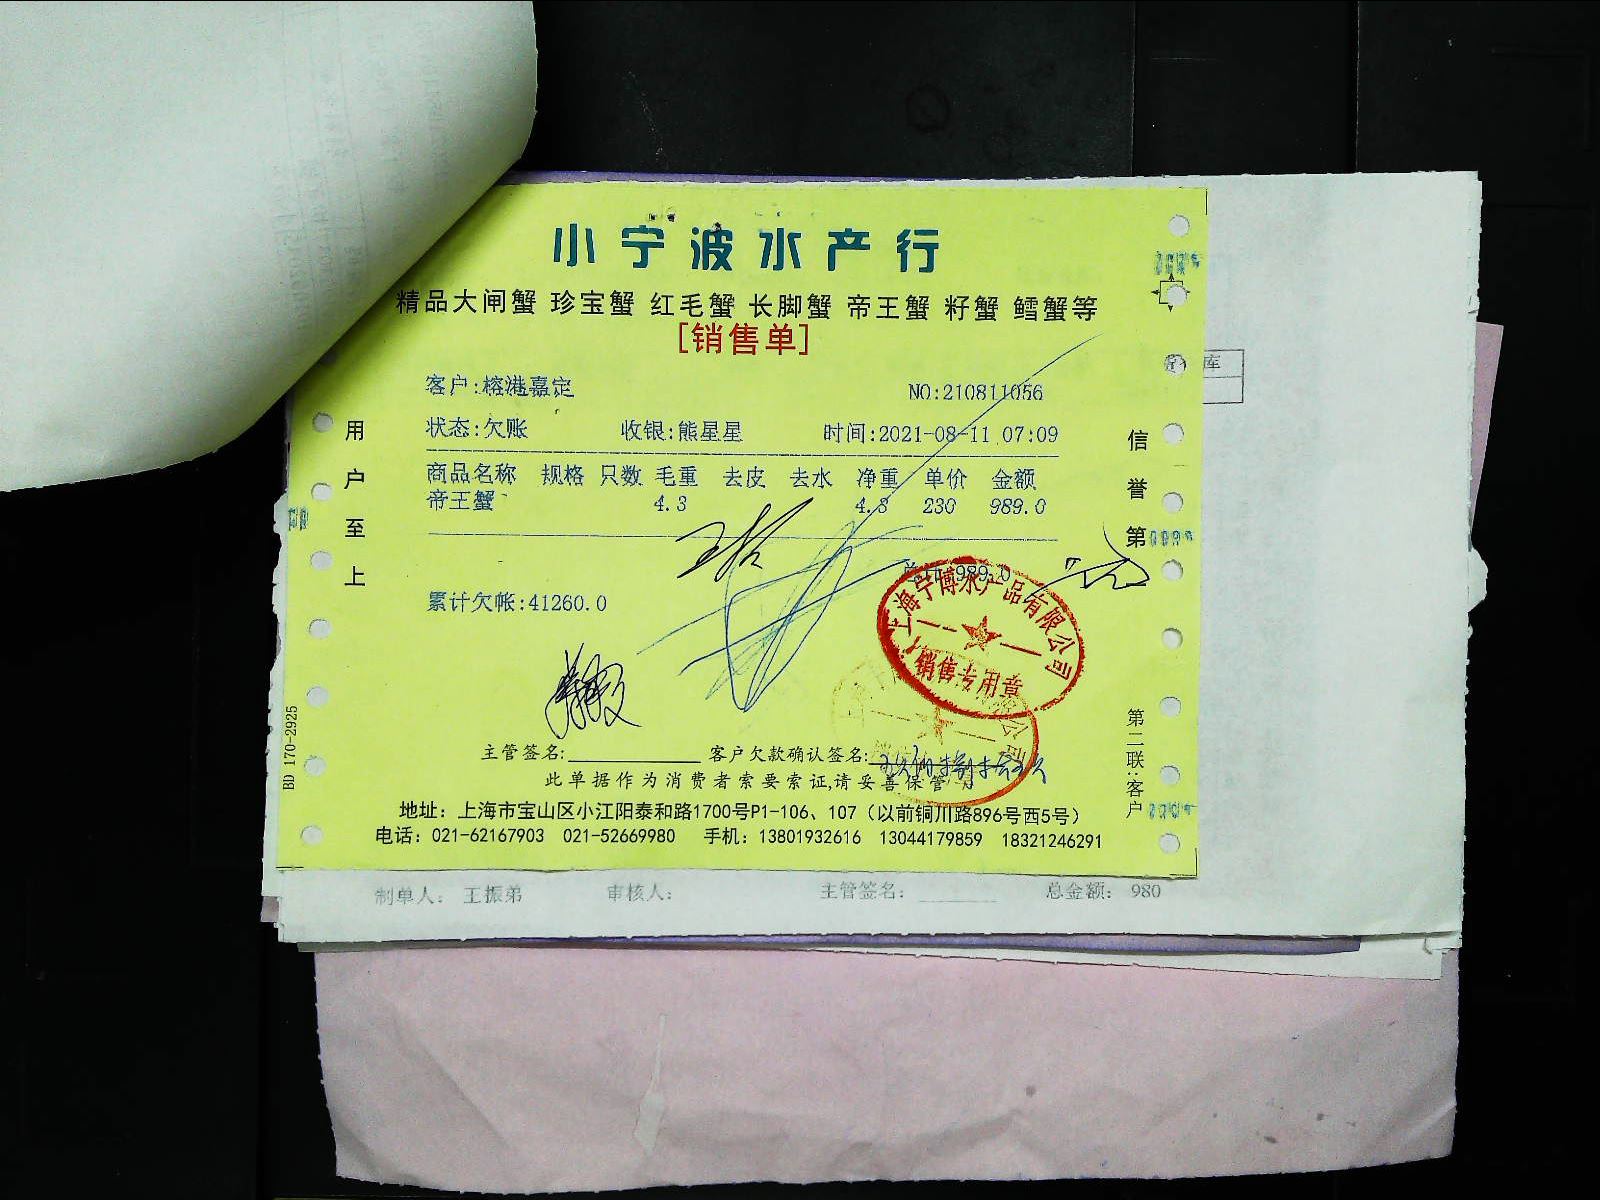 小宁波水产行
精品大闸蟹 珍宝蟹 红毛蟹 长脚蟹 帝王蟹 籽蟹 鳕蟹等
[销售单]
客户:榕港嘉定 NO:210811056
状态:欠账 收银:熊星星 时间:2021-08-11 07:09
商品名称 规格 只数 毛重 去皮 去水 净重 单价 金额
帝王蟹 4.3 4.3 230 989.0
总计:989.0
累计欠帐:41260.0
上海宁博水产品有限公司
销售专用章
主管签名: 客户欠款确认签名:
此单据作为消费者索要索证,请妥善保管
地址：上海市宝山区小江阳泰和路1700号P1-106、107（以前铜川路896号西5号）
电话：021-62167903 021-52669980 手机：13801932616 13044179859 18321246291
用户至上
信誉第一
第二联:客户
BD 170-2925
库
制单人: 王振弟 审核人: 主管签名: 总金额: 980